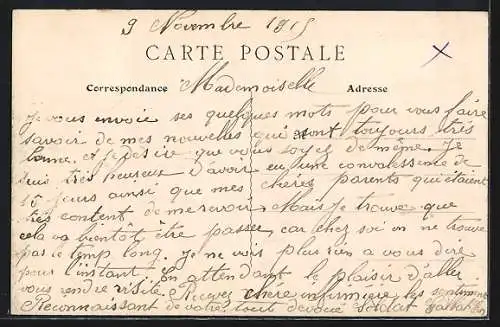 9 Novembre 1915
CARTE POSTALE
Correspondance Mademoiselle Adresse
Je vous envoie ses quelques mots pour vous faire
savoir de mes nouvelles qui sont toujours très
bonne. et je désire que vous soyez de même. Je
suis très heureux d'avoir eu une convalessente de
15 jours ainsi que mes chères parents qui étaient
très content de me revoir. Mais je trouve que
cela va bientôt être passée, car chez soi on ne trouve
pas le temp long. Je ne vois plus rien a vous dire
pour l'instant. En attendant le plaisir d'aller
vous rendre visite. Recevez chère infirmière les sentiment
Reconnaissant de votre tout dévoué soldat